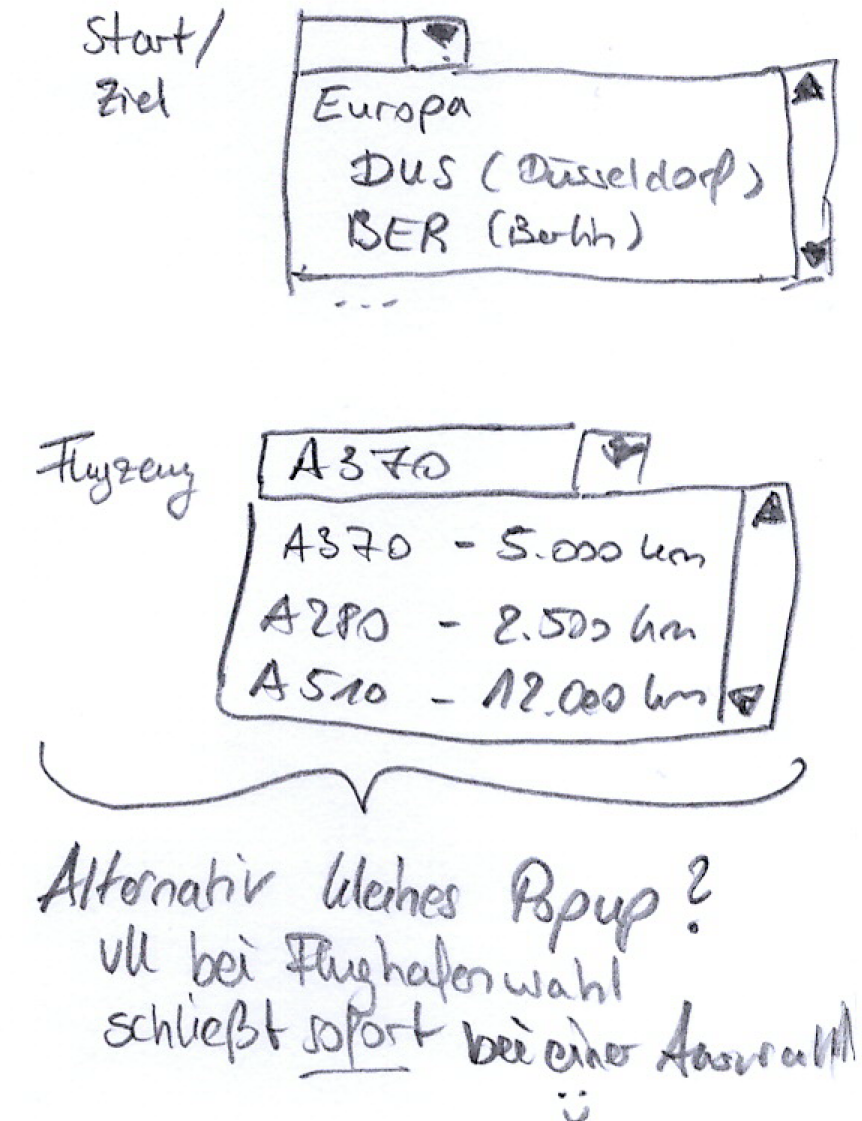 Start/
Ziel
Europa
DUS (Düsseldorf)
BER (Berlin)
...
Flugzeug
A370
A370 - 5.000 km
A280 - 2.500 km
A510 - 12.000 km
Alternativ kleines Popup?
vll bei Flughafenwahl
schließt sofort bei einer Auswahl